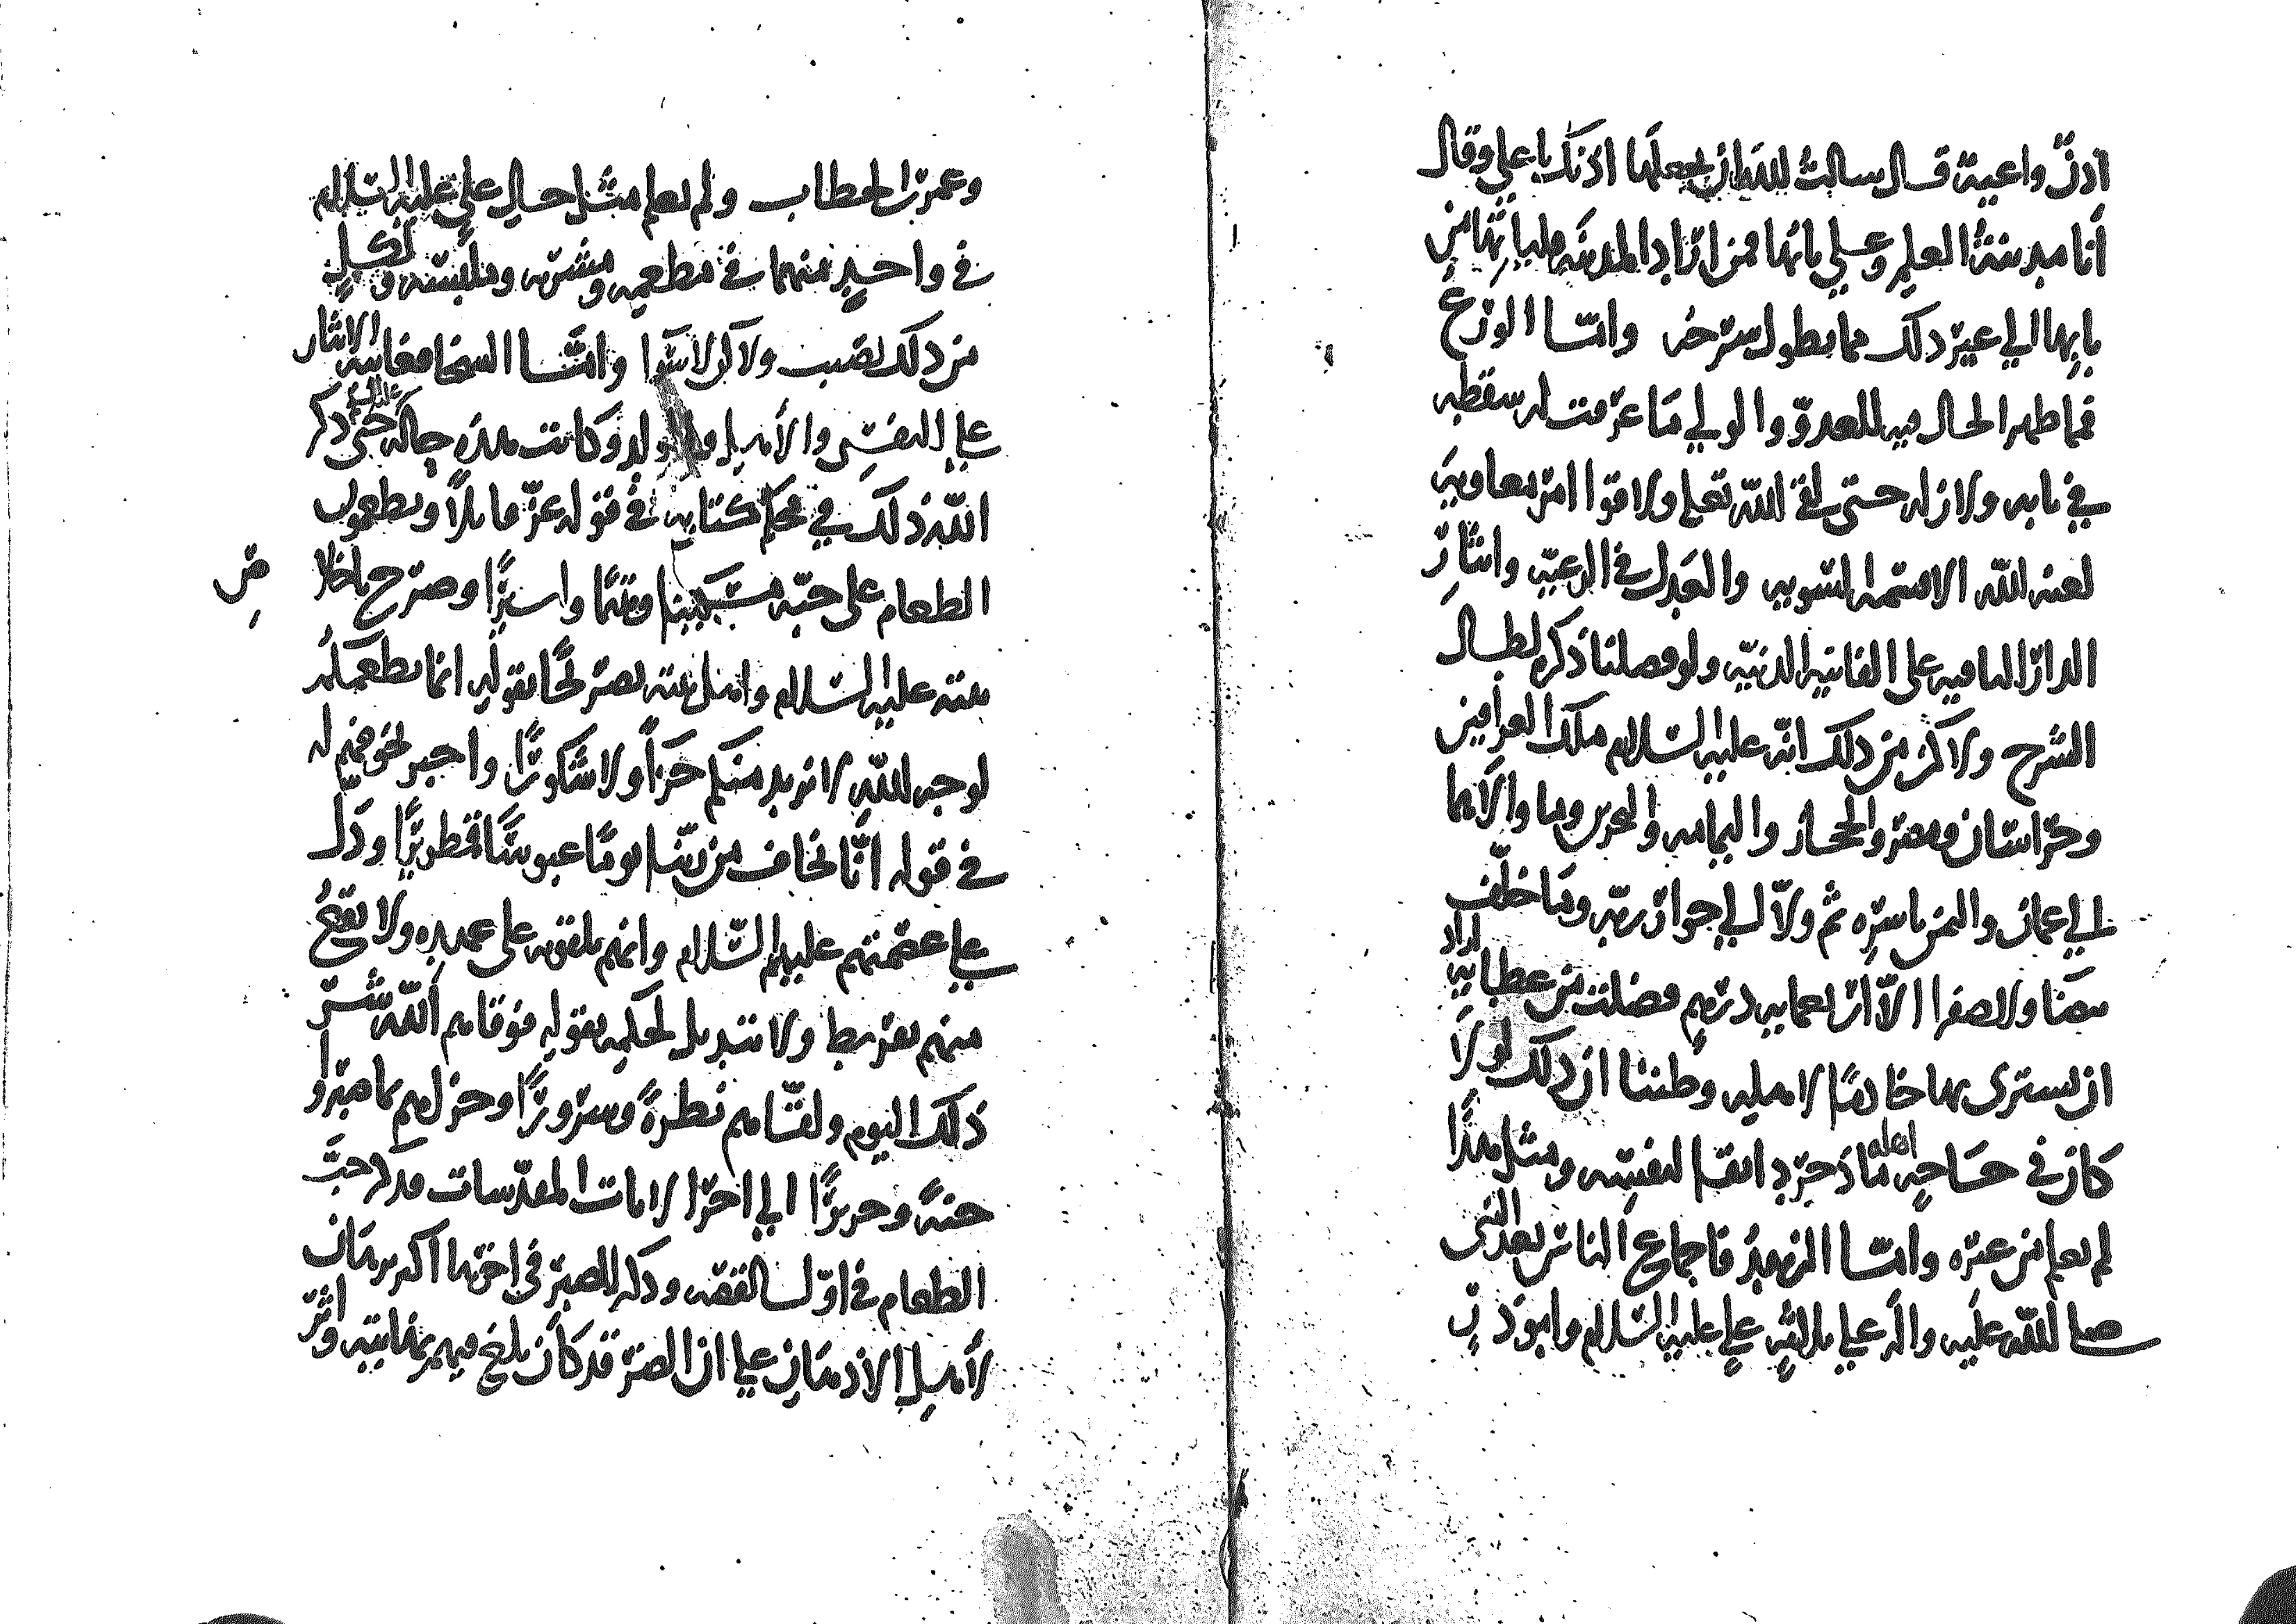 أذنٌ واعية قال سالتُ الله ان يجعلها اذنك يا علي وقال
أنا مدينةُ العلم وعلي بابها فمن اراد المدينة فلياتها من
بابها الي غير ذلك مما يطول شرحه وامّا الورع
فما ظهر الحال فيه للعدوّ والولي مَا عرفت له سقطه
في بابه ولا زله حتى لقي الله تعلى ولا قوا امر معاويه
لعنه الله الا قسمه السويه والعَدل في الرعيّه وايثار
الدار الباقيه على الفانيه الدنيّه ولو فصلنا ذكره لطال
الشرح ولاكن من ذلك انّه عليه السلام ملك العراقين
وخراسان ومصر والحجاز واليمامه والبحرين وما والاهما
الي عمان واليمن باسرِه ثم ولاّ الي جوار ربّه ومَا خلّف
بيضَا ولا صفرا الاّ اربعمايه درهمٍ فضلت من عطايه اراد
ان يشتري بها خادمًا لاهله وظننا ان ذلك لو لا
كان في حَاجه اهله مَا ذخره ابقا لنفسه ومثل هذَا
لم يعلم من غيره وامّا الزهدُ فاجماع الناس بعد النبي
صلى الله عليه واله علي ثلاثةٍ علي عليه السّلام وابو ذرٍ
وعمر بن الخطاب ولم يعلم مثل حال علي عليه السّلام
في واحدٍ منهما في مطعمه ومشربه وملبسه ولكلٍ
من ذلك نصيب ولاكن لا سَوا وامَّا السخا فغايته الايثار
علي النفسِ والأهل والولد وكانت هذه حاله عليه السلم حتى ذكر
الله ذلك في محكم كتابه في قوله عزّ قايلاً ويطعمون
الطعام على حبّه مسكينا ويتيمًا واسيرًا وصرح باخلاص
نيته عليه السّلام واهل بيته تصريحًا بقوله انما نطعمكُم
لوجه الله لا نريد منكم جزآً ولا شكورًا واخبر بخوفهم له
في قوله انّا نخاف من ربّنا يومًا عبوسًا قمطريرًا ودَلّ
علي عصمتهم عليهم السّلام وانهم يلقونه على عهده ولا يقعُ
منهم تفريط ولا تبديل لحكمه بقوله فوقاهم الله شر
ذلك اليوم ولقّاهم نضرةً وسرورًا وجزاهم بما صبروا
جنةً وحريرًا الي اخر الايات المقدّسات فذكر حبَّ
الطعام في اوّل القصه وذكر الصبر في اخرها اكبر برهان
لأهل الاذهان علي ان الضر قد كان بلغ فيهم نهايته واثر